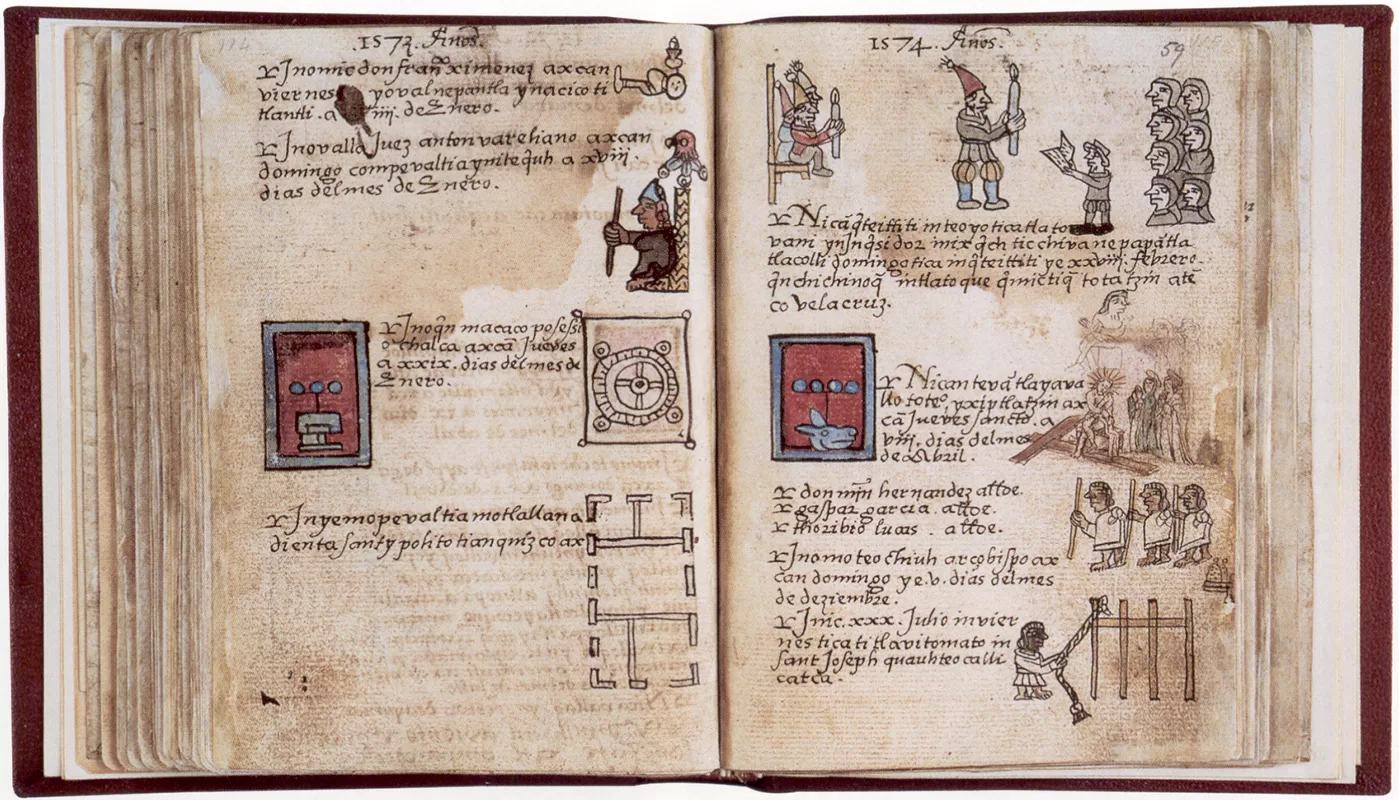 1573. Años.
Inomic don fran ximenez axcan
viernes yoval nepantla ynacico ti
tlantli. a iiij. de Enero.
Inovalla Juez anton vareliano axcan
domingo compevaltia ynitequh a xviij.
dias del mes de Enero.
Inoqn macaco posesi
o chalca axcā Jueves
a xxix. dias del mes de
Enero.
Inyemopevaltia motlallana
dienta santypolito tianquizco ax
1574. Años.
59
Nicā
vani yn Inqsidor mixqch tic chiva nepapātla
tlacolli domingotica ye xxviij. febrero.
qn chichinoq intlatoque qmictiq totatzin atē
co velacruz.
Nican tevātlayava
llo toteo. yxiptlatzin ax
cā Jueves sancto. a
viij. dias del mes
de Abril.
don min hernandez allde.
gaspar garcia. allde.
thoribio lucas. allde.
Inomoteochiuh arçobispo ax
can domingo ye.v. dias del mes
de deziembre.
Inic.xxx. Julio in vier
nestica titlavitomato in
sant Joseph quauhteocalli
catca.